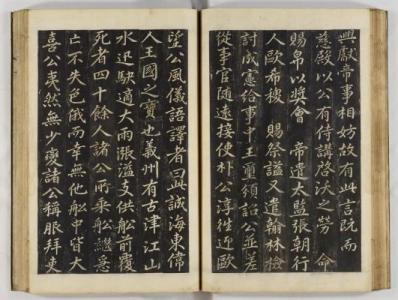 興獻帝事相妨故有此言既而
慈殿以公有侍講啓沃之勞 命
賜帛以奬會 帝遣大監張朝行
人歐希稷 賜祭謚又遣翰林檢
討成憲給事中王璽頒詔公並差
從事官隨遠接使朴公淳徃迎歐
望公風儀語譯者曰此誠海東偉
人王國之寶也義州有古津江山
水迅駃適大雨漲溢支供舩前覆
死者四十餘人諸公所乘舩繼急
亡不失色俄而幸無他舩中皆大
喜公夷然無少變諸公稱服拜吏